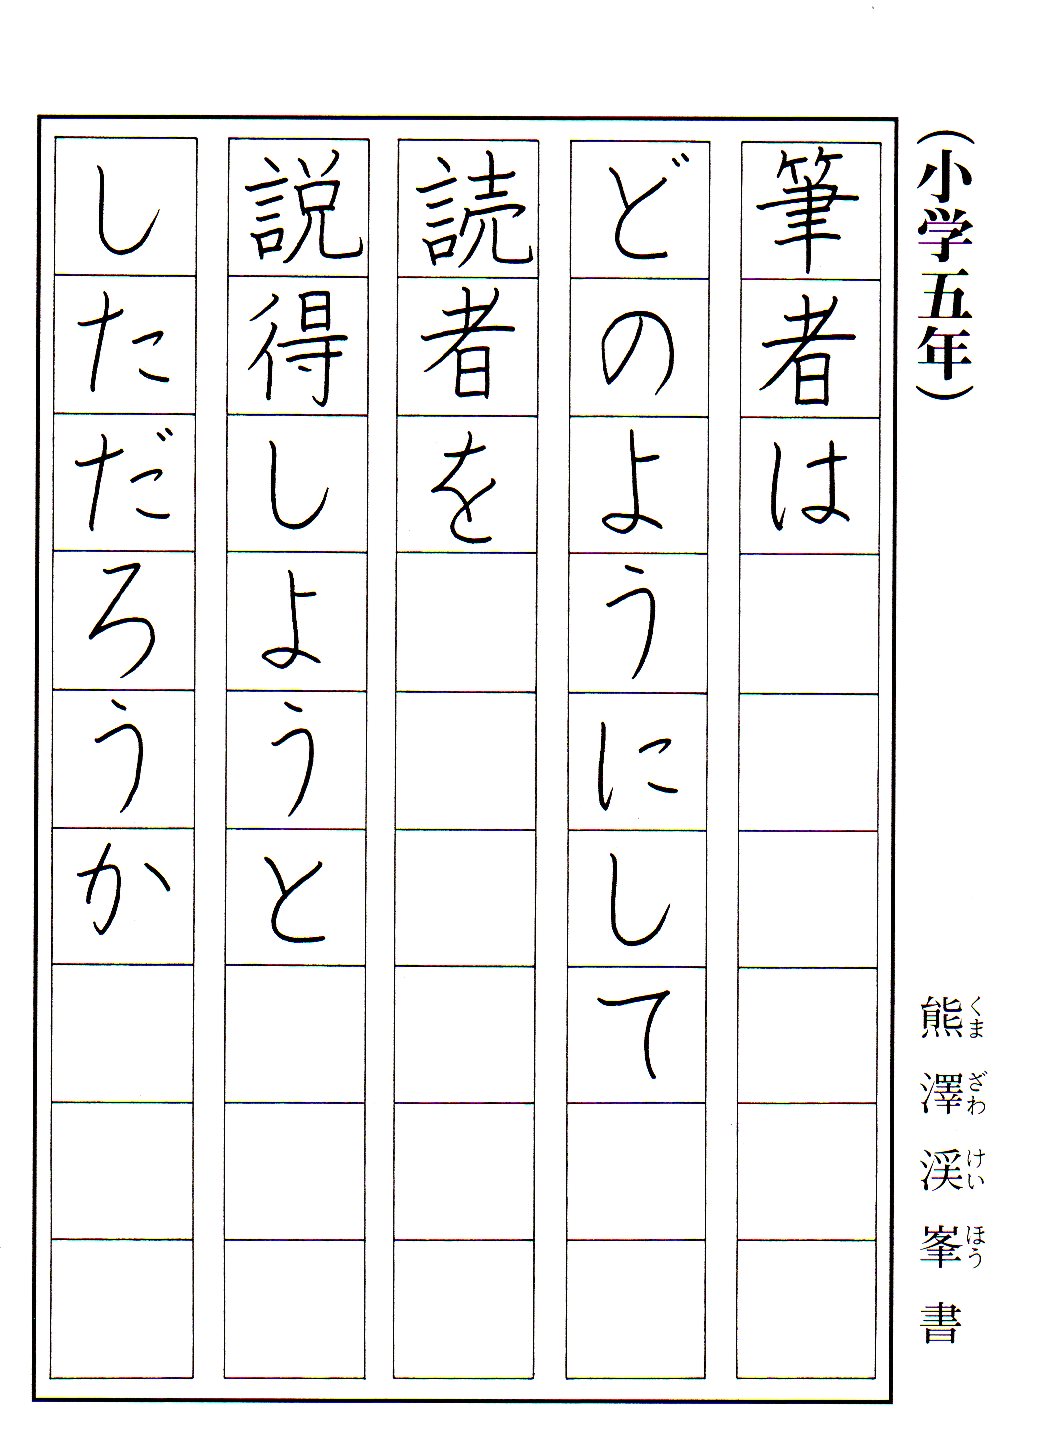 （小学五年）
熊澤渓峯書
くまざわけいほう
筆者は
どのようにして
読者を
説得しようと
しただろうか